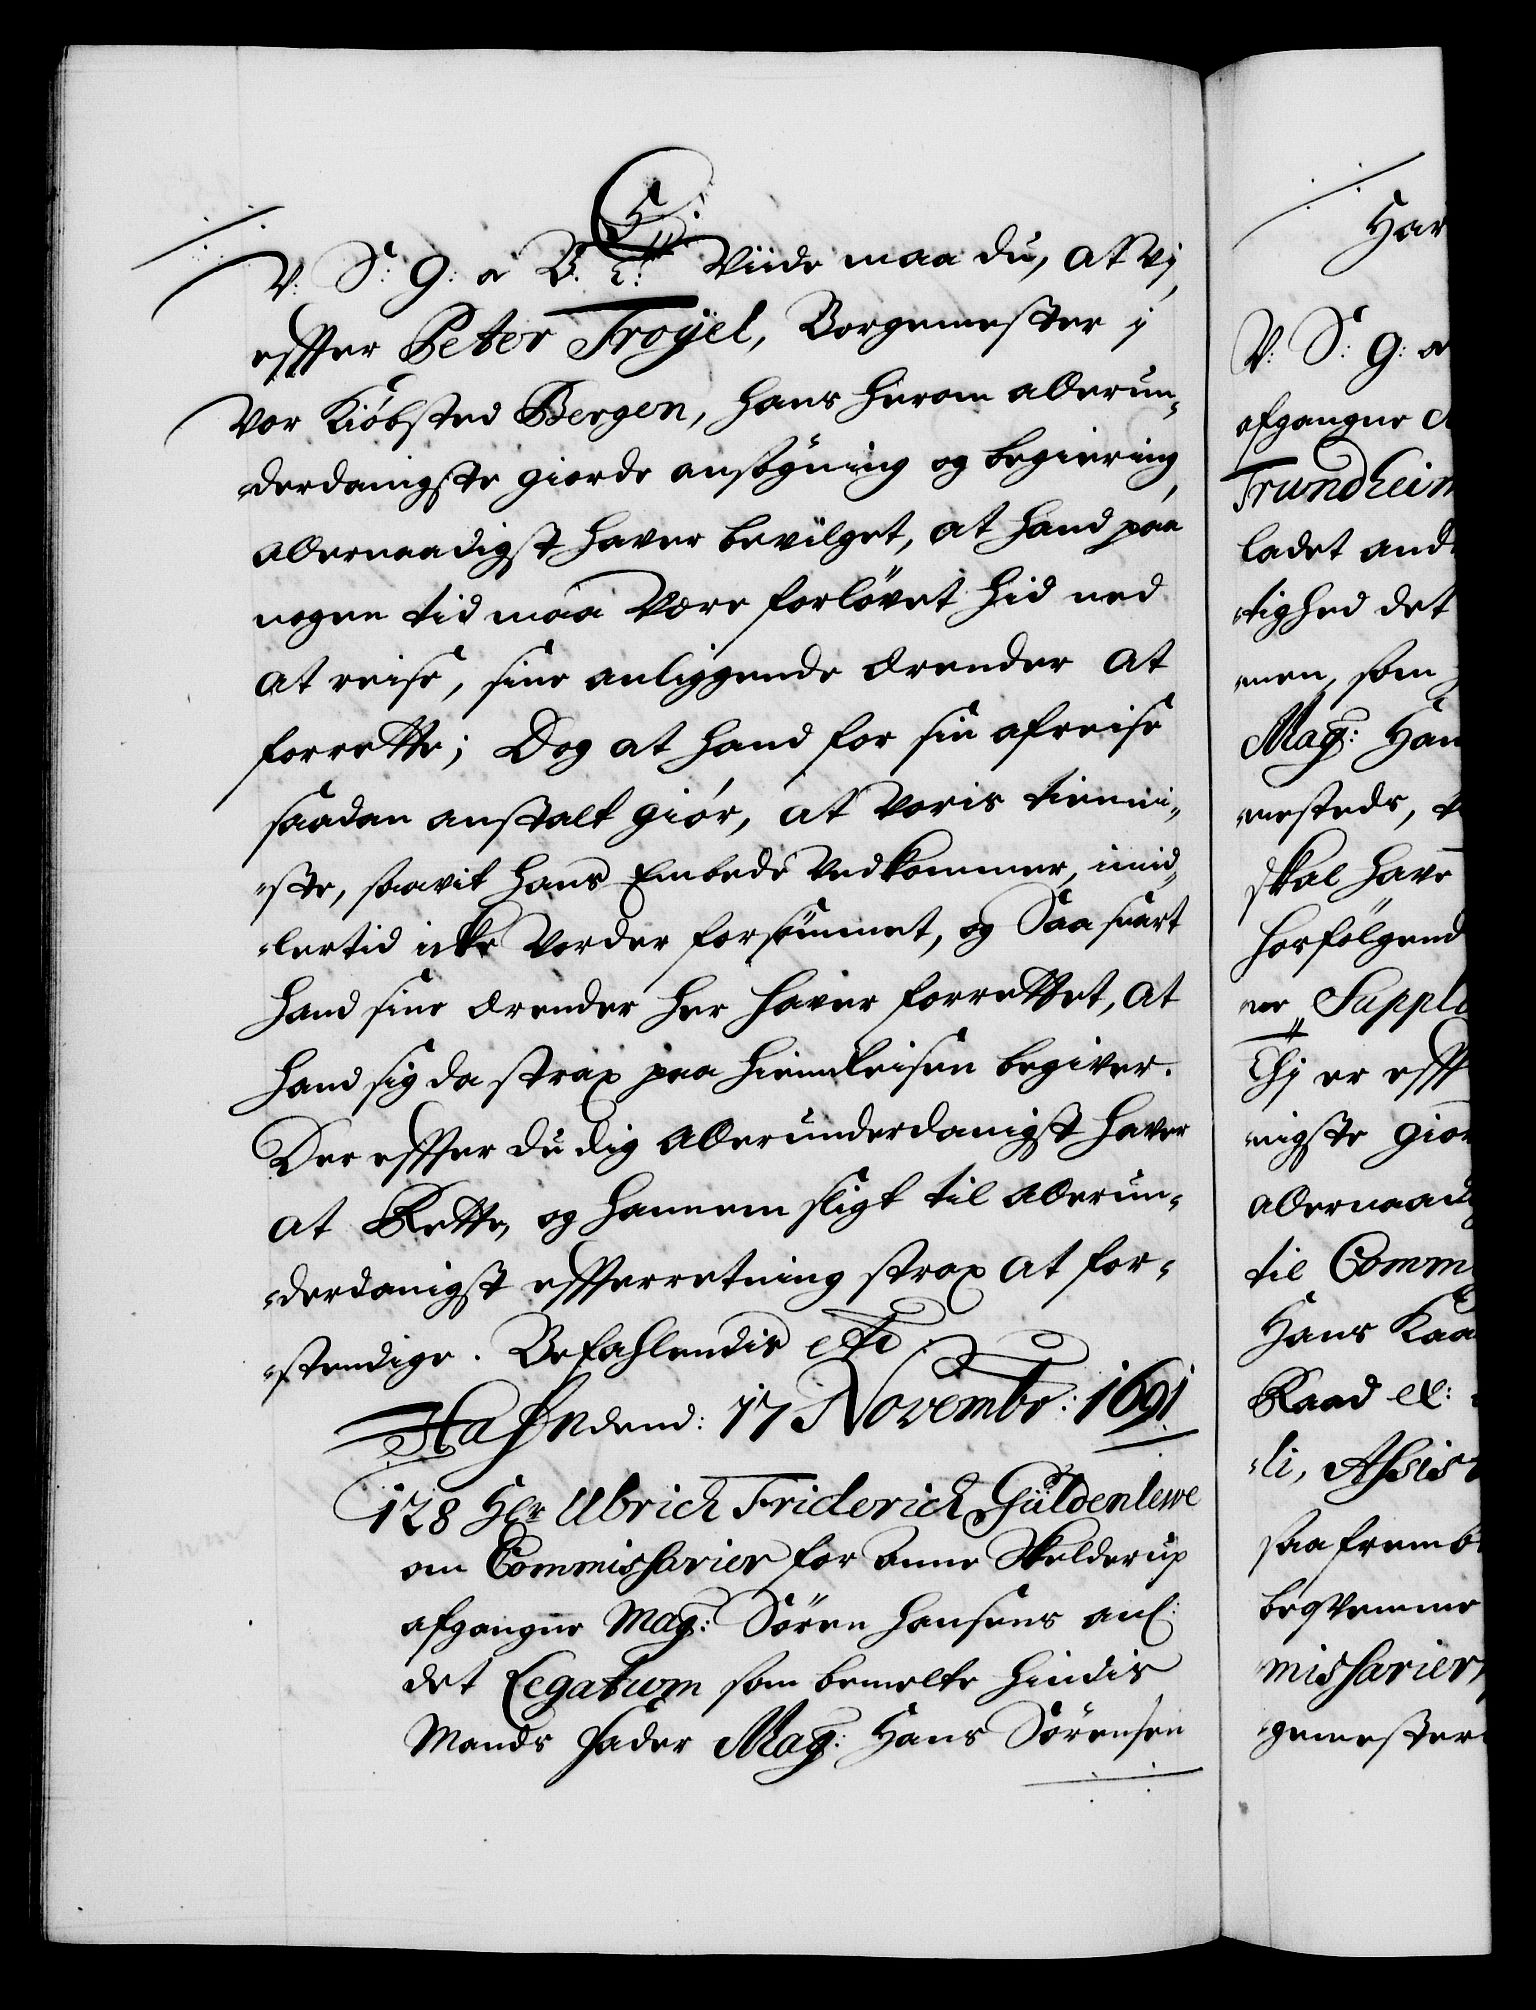 C5.
V: S: G: o B. T: Viide maa du, at Vj
effter Peter Troÿel, Borgemester i
Vor Kiöbsted Bergen, hans herom allerun-
derdanigste giorde ansögning og begiering
allernaadigst haver bevilget, at hand paa
nogen tid maa Være forlövet hid ned
at reise, sine anliggende ærender at
forrette; Dog at hand for sin afreise
saadan anstalt giör, at Voris tienni-
ste, saavit hans Embede Vedkommer, imid-
lertid icke Vorder forsömmet, og Saa snart
hand sine ærender her haver forrettet, at
hand sig da strax paa hiemreisen begiver.
Der effter du dig allerunderdanigst haver
at Rette, og hannem sligt til allerun-
derdanigst effterretning strax at for-
stendige. Befahlendis etc
Hafn dend: 17 Novembr: 1691
128 Hr Ulrich Friderich Güldenlewe
om Commissarier for Anne Skelderup
afgangne Mag: Sören Hansens anl:
det Legatum som bemelte hindis
Mands Fader Mag: Hans Sörensen
Har
V: S: G: o
afgangne
Trundheim
ladet and
tighed det
men, som
Mag: Han
mesteds,
skal have
horfölgend
ne Suppli
Thj er efft
nigste gior
allernaadig
til Comm
Hans Kaa
Raad etc:
li, Assist
saa fremt
beqvemme
missarier
gemester